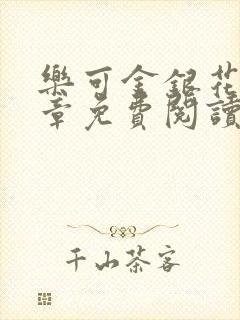 樂可金銀花
章免費閱讀
千山茶客